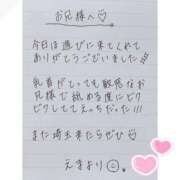 お兄様へ♡
今日は遊びに来てくれて
ありがとうございました
乳首がとっても敏感なお
兄様で舐める度にビク
ビクしててえっちだった!!!
また埼玉来たらぜひ♡
えまより☺